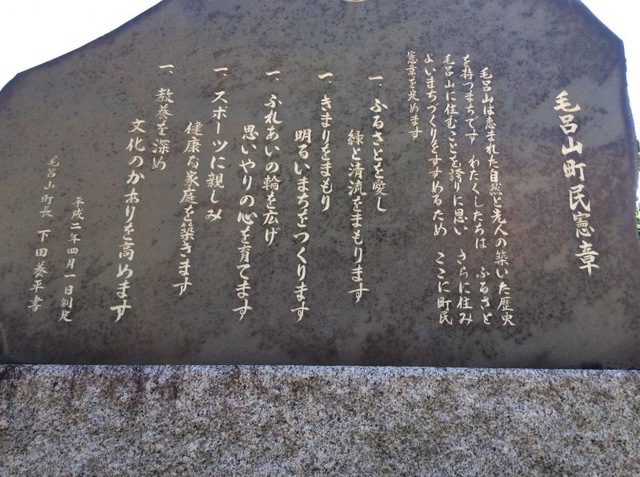 毛呂山町民憲章
毛呂山は恵まれた自然と先人の築いた歴史
を持つまちです わたくしたちは ふるさと
毛呂山に住むことを誇りに思い さらに住み
よいまちづくりをすすめるため ここに町民
憲章を定めます
一、ふるさとを愛し
緑と清流をまもります
一、きまりをまもり
明るいまちをつくります
一、ふれあいの輪を広げ
思いやりの心を育てます
一、スポーツに親しみ
健康な家庭を築きます
一、教養を深め
文化のかおりを高めます
平成二年四月一日制定
毛呂山町長 下田養平書